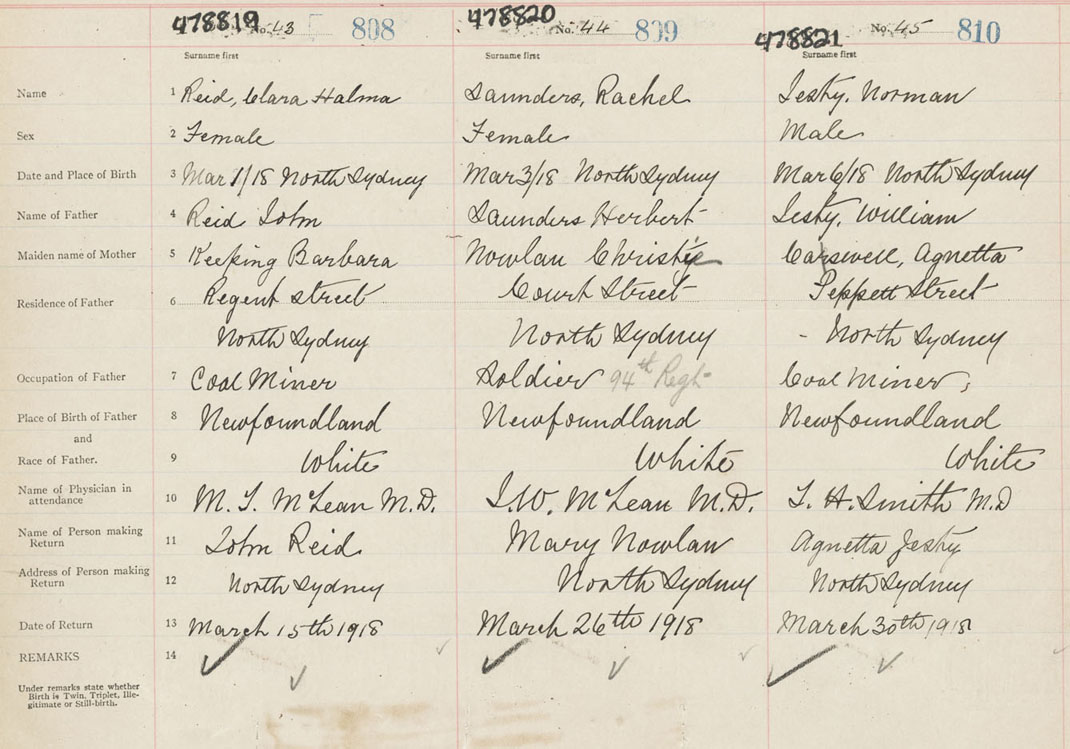 478819 No. 43 808
478820 No. 44 809
478821 No. 45 810
Surname first Surname first Surname first
Name 1 Reid, Clara Halma Saunders, Rachel Jesty, Norman
Sex 2 Female Female Male
Date and Place of Birth 3 Mar 1/18 North Sydney Mar 3/18 North Sydney Mar 6/18 North Sydney
Name of Father 4 Reid John Saunders Herbert Jesty, William
Maiden name of Mother 5 Keeping Barbara Nowlan Christy Carswell, Agnetta
Residence of Father 6 Regent Street Court Street Peppett Street
North Sydney North Sydney - North Sydney
Occupation of Father 7 Coal Miner Soldier 94th Regt Coal Miner,
Place of Birth of Father 8 Newfoundland Newfoundland Newfoundland
and
Race of Father. 9 White White White
Name of Physician in
attendance 10 M. T. McLean M.D. J.W. McLean M.D. T. H. Smith M.D
Name of Person making
Return 11 John Reid Mary Nowlan Agnetta Jesty
Address of Person making
Return 12 North Sydney North Sydney North Sydney
Date of Return 13 March 15th 1918 March 26th 1918 March 30th 1918
REMARKS 14
Under remarks state whether
Birth is Twin, Triplet, Ille-
gitimate or Still-birth.